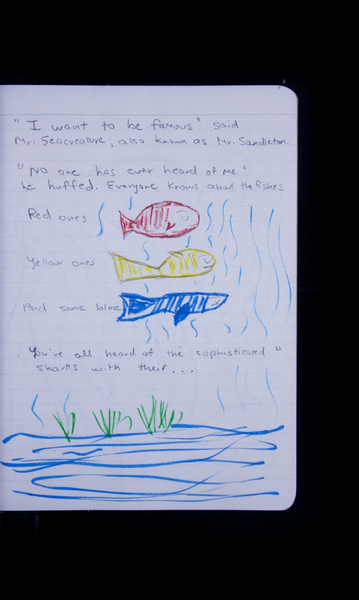 "I want to be famous" said
Mr. Seacreature, also known as Mr. Sandleton.
"No one has ever heard of me"
he huffed. Everyone knows about the fishes
Red ones
Yellow ones
And some blue
You've all heard of the sophisticated "
sharks with their...